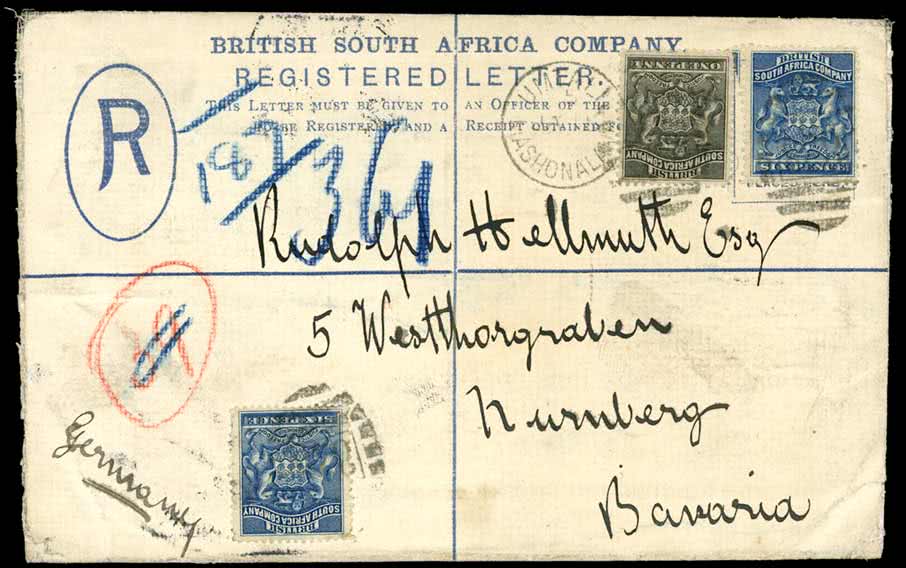 BRITISH SOUTH AFRICA COMPANY.
REGISTERED LETTER.
THIS LETTER MUST BE GIVEN TO AN OFFICER OF THE
TO BE REGISTERED, AND A RECEIPT OBTAINED
R
187
361
ASHONAL
ONE PENNY
BRITISH
SOUTH AFRICA COMPANY
BRITISH
SOUTH AFRICA COMPANY
SIX PENCE
Rudolph Hellmuth Esq
5 Westthorgraben
Nurnberg
Bavaria
Germany
SIX PENCE
SOUTH AFRICA COMPANY
BRITISH